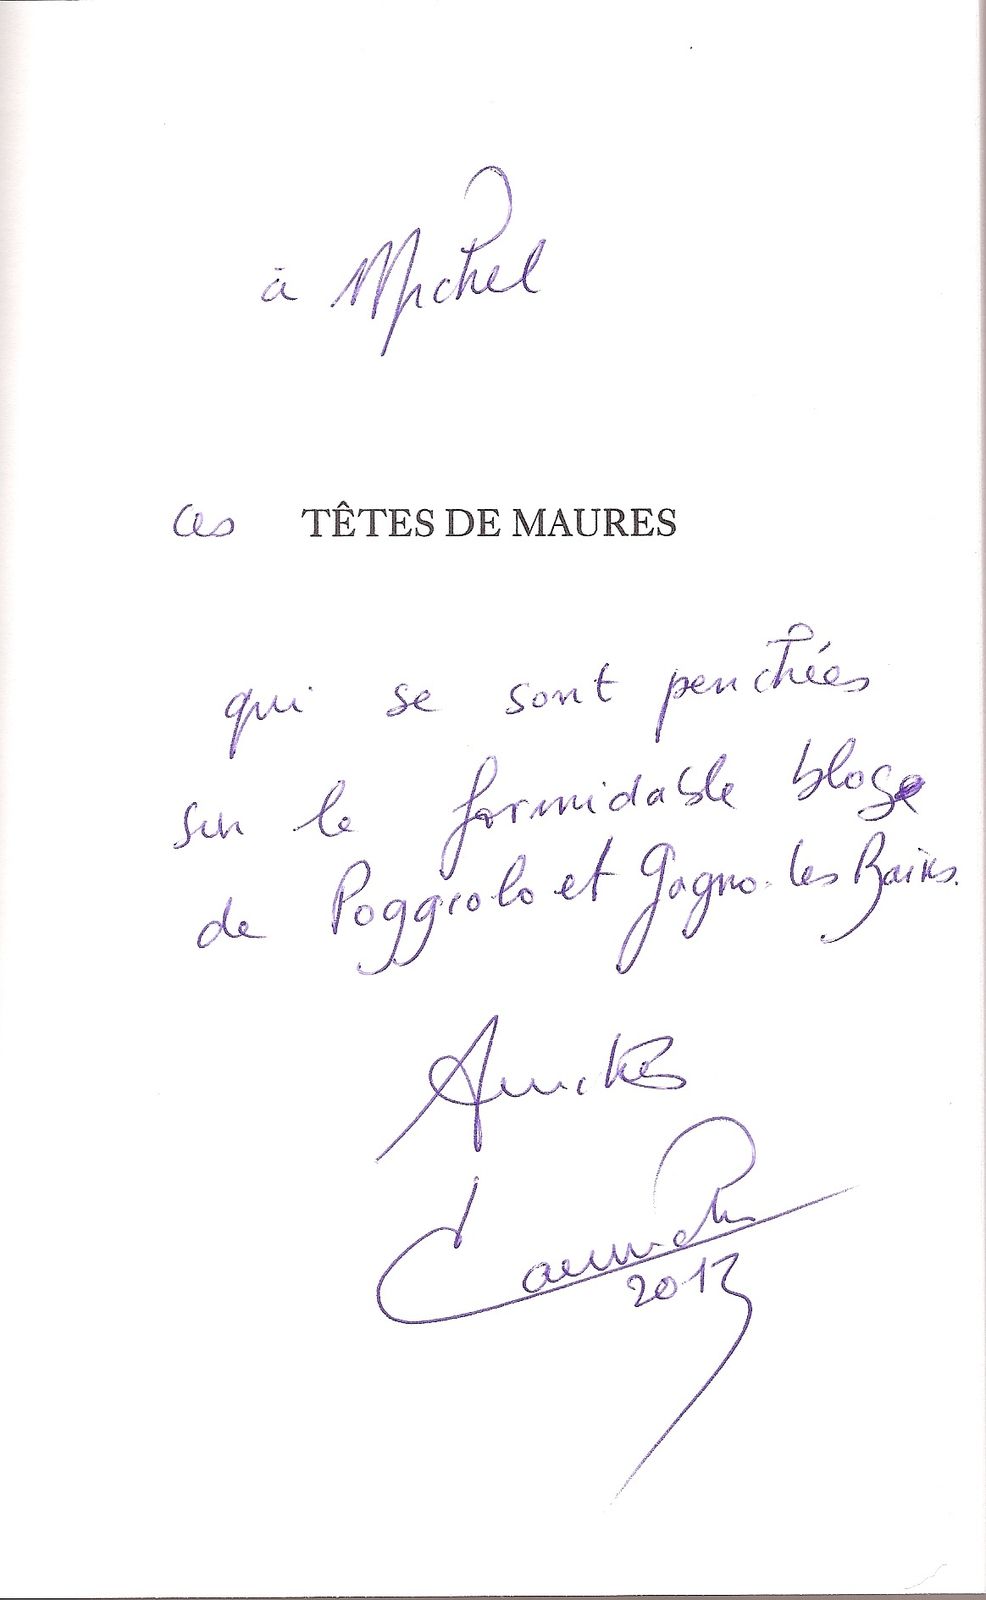 à Michel
ces TÊTES DE MAURES
qui se sont penchées
sur le formidable blog
de Poggiolo et Gagno-les Bains.
Amitiés
Daeninckx
2013